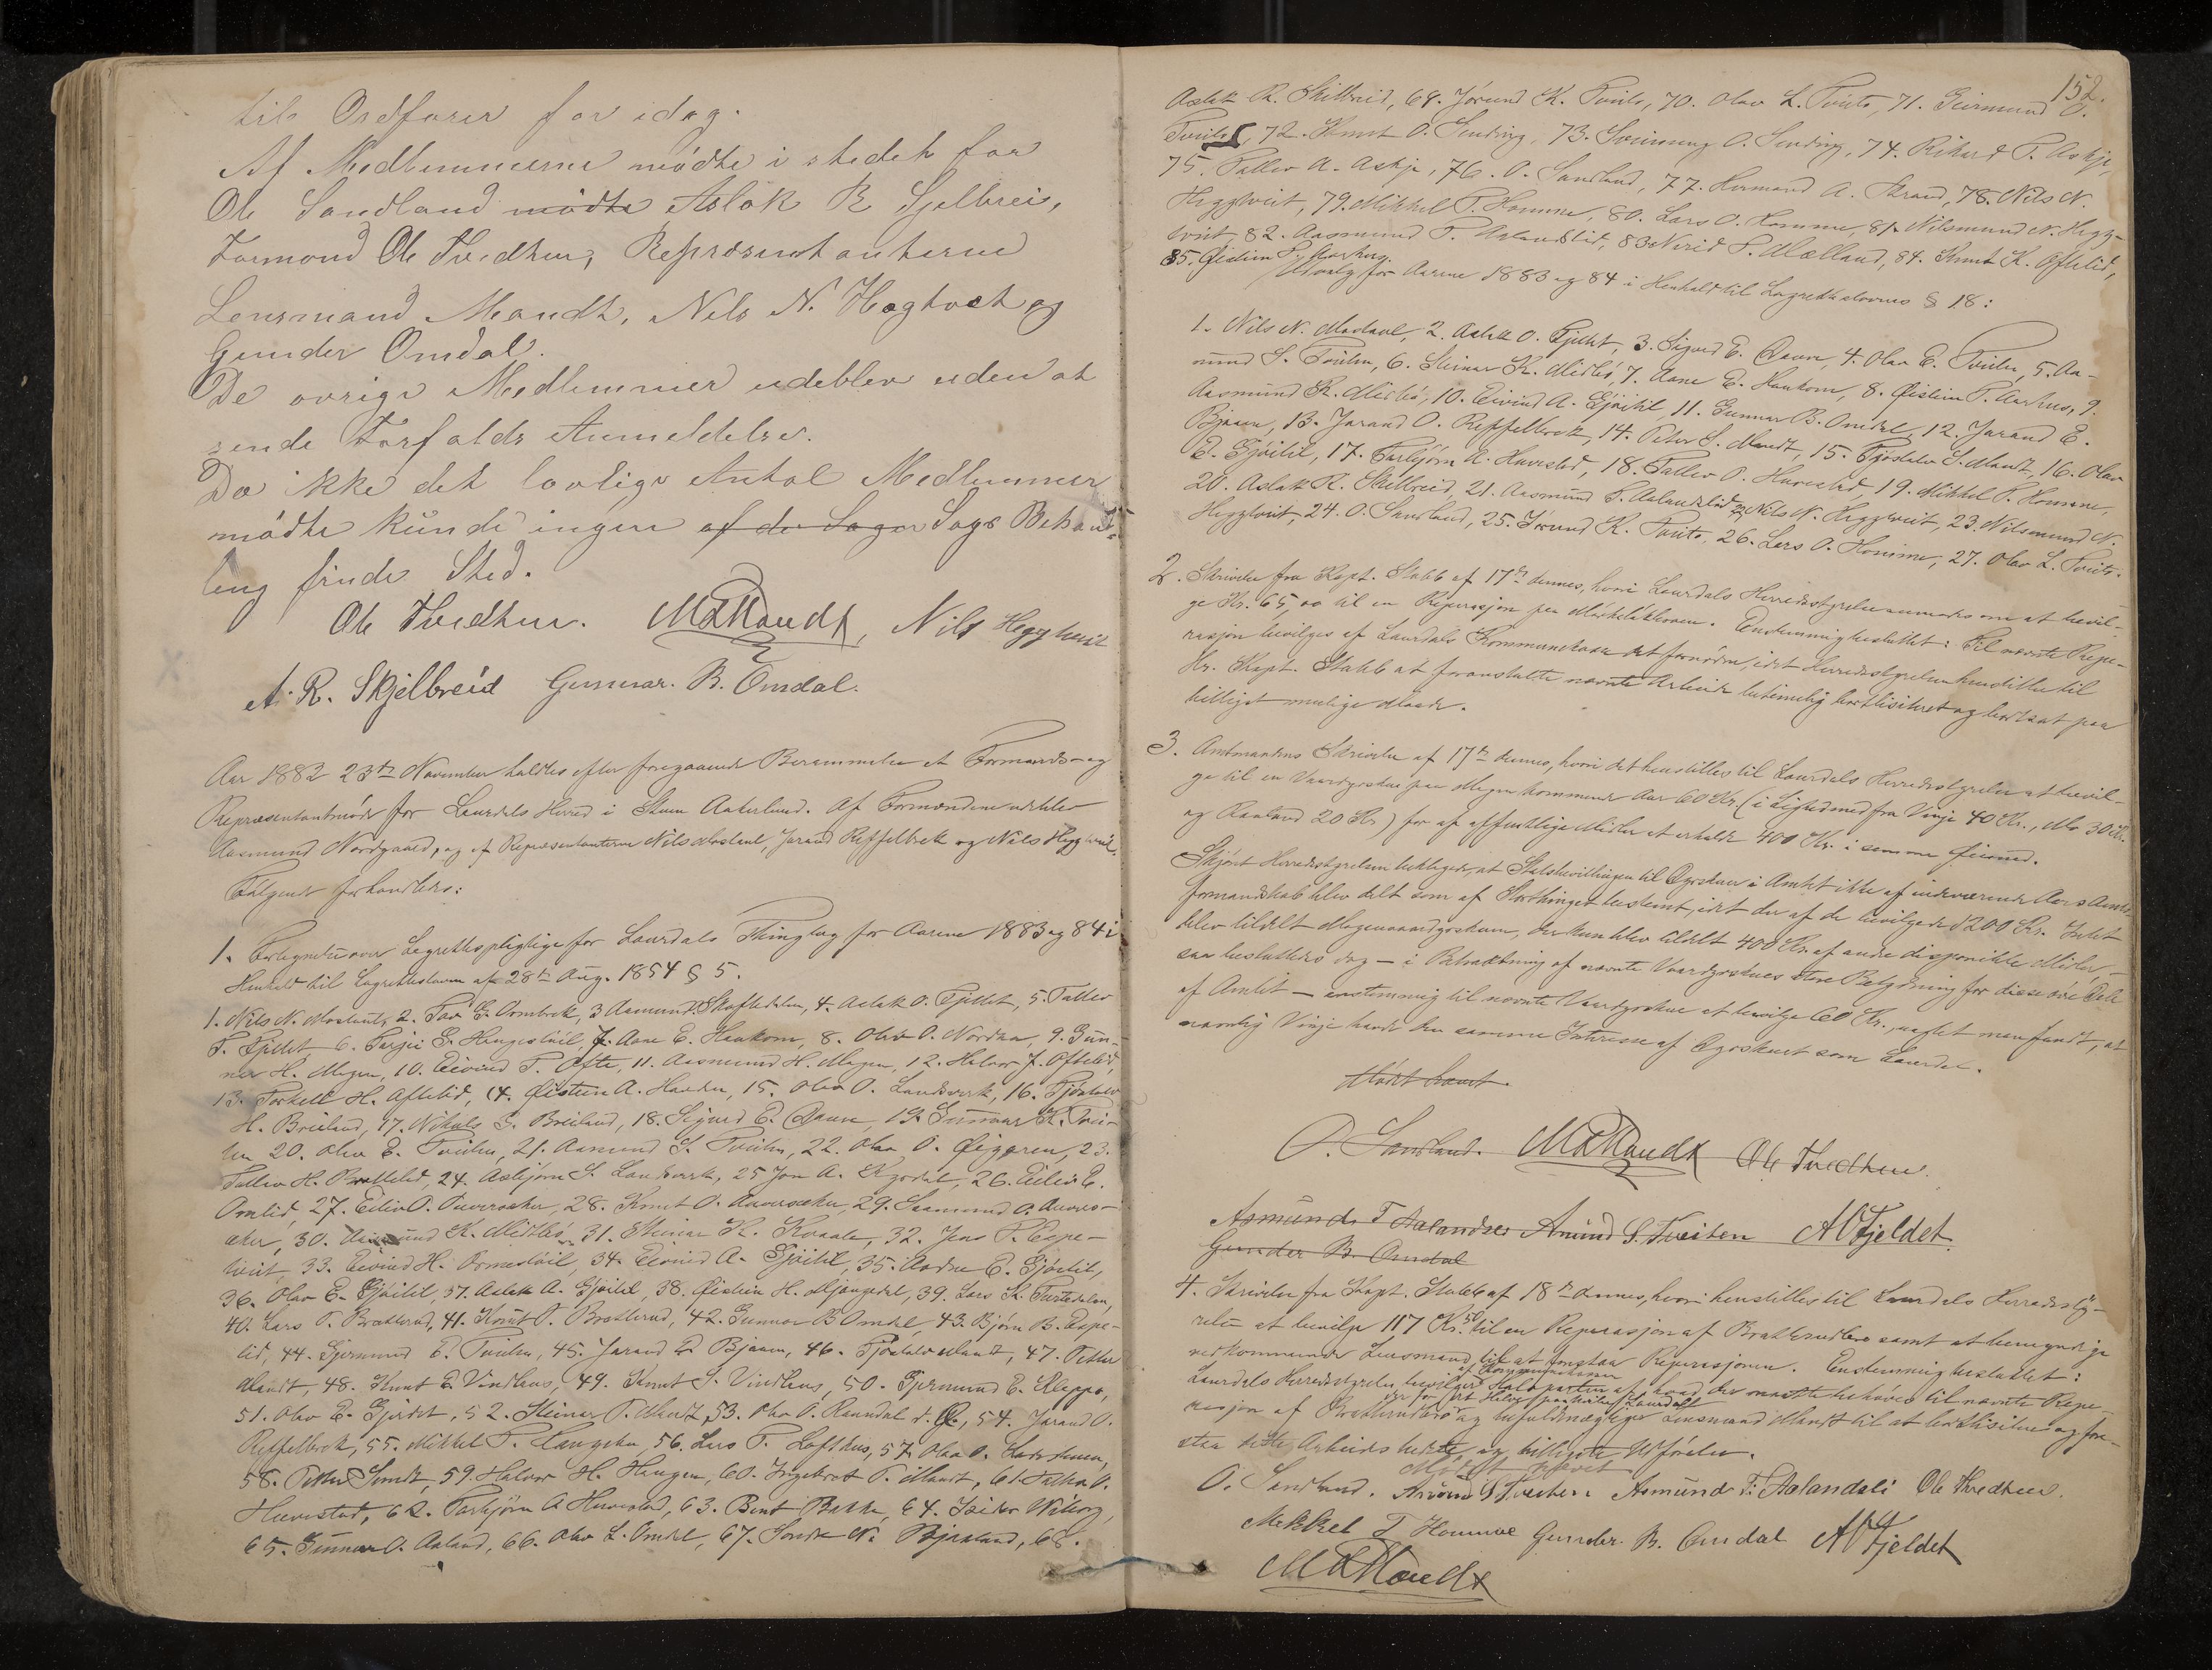 tils Ordfører for idag.
Af Medlemmerne mødte i stedet for
Ole Sandland mødte Aslak R Sjelbrei,
Formond Ole Tvedten, Repræsentanterne
Lensmand Mandt, Nils N. Hægtvet og
Gunder Omdal.
De øvrige Medlemmer udeblev uden at
sende Forfalds Anmeldelse.
Da ikke det lovlige Antal Medlemmer
mødte kunde ingen af de Sager Sags Behand-
ling finde Sted.
Ole Tvedten. M Mandt, Nils Heggtveit
A. R. Skjelbreid Gunnar. B. Omdal.
Aar 1882 23de November holdtes efter foregaaende Berammelse et Formands- og
Repræsentantmøde for Laurdals Herred i Skuen Aakerlund. Af Formændene udeblev
Aasmund Nordgaard, og af Repræsentanterne Nils Mostaul, Jarand Reffelbrek og Nils Heggtveit.
Følgende forhandledes:
1. Fortegnelse over Lagrettespligtige for Laurdals Thinglag for Aarene 1883 og 84 i
Henhold til Lagretteloven af 28de Aug. 1854 § 5.
1. Nils N. Mostaul, 2. Tov E. Ormbrek, 3 Aamund Skaftedalen, 4. Aslak O. Fjeldet, 5. Tallev
T. Fjeldet 6. Tarjei G. Haugestøil, 7. Aane E. Haukom, 8. Olav O. Nordbø, 9. Gun-
nar H. Megen, 10. Eivind T. Ofte, 11. Aasmund H. Megen, 12. Halvor J. Oftelid,
13. Torkell H. Oftelid, 14. Øistein A. Haaden, 15. Olav O. Landsverk, 16. Tjøstolv
H. Breiland, 17. Nikuls G. Breiland, 18. Sigurd E. Daure, 19. Gunnar K. Tvei-
ten 20. Olav E. Tveiten, 21. Aamund S. Tveiten, 22. Olav O. Øigaren, 23.
Tallev H. Brattelid, 24. Asbjørn S. Landsverk, 25 Jon A. Rygdal, 26. Eiliv E.
Omlid, 27. Eiliv O. Aaversaker, 28. Knut O. Aaversaker, 29. Saamund O. Aavers-
aker, 30. Aasmund K. Midtbø, 31. Steinar K. Koraale, 32. Jens P. Espe-
tveit, 33. Eivind H. Ormestøil, 34. Eivind A. Gjøitil, 35. Aadne E. Gjøitil,
36. Olav E. Gjøitil, 37. Aslak A. Gjøitil, 38. Øistein H. Mjaugedal, 39. Lars K. Tveitedalen,
40. Lars T. Bratterud, 41. Knut T. Bratterud, 42. Gunnar B Omdal, 43. Bjørn B. Espe-
lid, 44. Gjermund E. Tveiten, 45. Jarand E. Bjaaen, 46. Tjøstolv Mandt, 47. Petter
Mandt, 48. Knut E. Vindlaus, 49. Knut S. Vindlaus, 50. Gjermund E. Kleppo,
51. Olav E. Gjerdet, 52. Steinar P. Mandt, 53. Olav O. Raundal d. E., 54. Jarand O.
Reffelbrek, 55. Mikkel T. Haugen, 56. Lars T. Lofthus, 57. Olav O.
58. Petter Smidt, 59. Halvor H. Haugen, 60. Ingebret P. Mandt, 61. Tallev O.
Huvestad, 62. Torbjørn A Huvestad, 63. Bent Bakka, 64. Isidor Wiborg,
65. Gunnar O. Aaland, 66. Olav L. Omdal, 67. Sondre N. Bjaaland, 68.
152.
Aslak R. Skilbreid, 69. Jørund K. Tveito, 70. Olav L. Tveito, 71. Geirmund O.
Tveito, 72. Knut O. Sundring, 73. Sveinung O. Sundring, 74. Rikard T. Askje,
75. Tallev A. Askje, 76. O. Sandland, 77. Hermand A. Strand, 78. Nils N.
Heggtveit, 79. Mikkel T. Homme, 80. Lars O. Homme, 81. Nilsmund N. Hegg-
tveit 82. Aasmund T. Aalandslid, 83 Nerid S. Mælland, 84. Knut K. Oftelid,
85. Øistein P. Aarhus.
Udvalg for Aarene 1883 og 84 i Henhold til Lagrettelovens § 18:
1. Nils N. Mostaul, 2. Aslak O. Fjeldet, 3. Sigurd E. Daure, 4. Olav E. Tveiten, 5. Aa-
mund S. Tveiten, 6. Steinar K. Midtbø, 7. Aane E. Haukom, 8. Øistein P. Aarhus, 9.
Aasmund K. Midtbø, 10. Eivind A. Gjøitil, 11. Gunnar B. Omdal, 12. Jarand E.
Bjaaen, 13. Jarand O. Reffelbrek, 14. Peter S. Mandt, 15. Tjøstolv S. Mandt, 16. Olav
E. Gjøitil, 17. Torbjørn A. Huvestad, 18. Tallev O. Huvestad, 19. Mikkel T. Homme,
20. Aslak R. Skilbreid, 21. Aasmund T. Aalandslid 22 Nils N. Heggtveit, 23. Nilsmund N.
Heggtveit, 24. O. Sandland, 25. Jørund K. Tveito, 26. Lars O. Homme, 27. Olav L. Tveito.
2. Skrivelse fra Kapt. Stabb af 17de dennes, hvori Laurdals Herredsstyrelse anmodes om at bevil-
ge Kr. 65,00 til en Reparasjon paa Mørkelikleven. Enstemmig besluttet: Til nævnte Repa-
rasjon bevilges af Laurdals Kommunekasse det fornødne, idet Herredsstyrelsen henstiller til
Hr. Kapt. Stabb at foranstalte nævnte Arbeide betimelig bortlisiteret og bortsat paa
billigst mulige Maade.
3. Amtmandens Skrivelse af 17de dennes, hvori det henstilles til Laurdals Herredsstyrelse at bevil-
ge til en Vaardyrskue paa Megen kommende Aar 60 Kr. (i Lighed med fra Vinje 40 Kr., Mo 30 Kr.
og Rauland 20 Kr) for af offentlige Midler at erholde 400 Kr. i samme Øiemed.
Skjønt Herredsstyrelsen beklagede, at Statsbevillingen til Dyrskuer i Amtet ikke af indeværende Aars Amts-
formandskab blev delt som af Storthinget bestemt, idet der af de bevilgede 1200 Kr. Intet
blev tildelt Megenvaardyrskuen, der kun blev tildelt 400 Kr. af andre disponible Midler –
saa besluttedes dog – i Betragtning af nævnte Vaardyrskues store Betydning for disse øvre Dele
af Amtet – enstemmig til nævnte Vaardyrskue at bevilge 60 Kr., uagtet man fandt, at
navnlig Vinje havde den samme Interesse af Dyrskuet som Laurdal.
Mødet hævet.
O. Sandland. M Mandt Ole Tvedten.
Asmund T Aalandsli Amund S. Tveiten AOFjeldet.
Gunder B. Omdal
4. Skrivelse fra Kapt. Stabb af 18de dennes, hvori henstilles til Laurdals Herredssty-
relse at bevilge 117 Kr. 50 til en Reparasjon af Brattlandbro samt at bemyndige
vedkommende Lensmand til at forestaa Reparasjonen. Enstemmig besluttet:
af Kommunekassen
Laurdals Herredsstyrelse bevilger Halvparten af, hvad der maatte behøves til nævnte Repa-
rasjon af Brattlandbro og befuldmægtiger Lensmand Mandt til at bortlisitere og fore-
staa dette Arbeids bedste og billigste Udførelse.
Mødet hævet
O. Sandland. Amund S Tveiten Asmund T. Aalandsli Ole Tvedten.
Mekkel T Homme Gunder. B. Omdal AOFjeldet
M Mandt